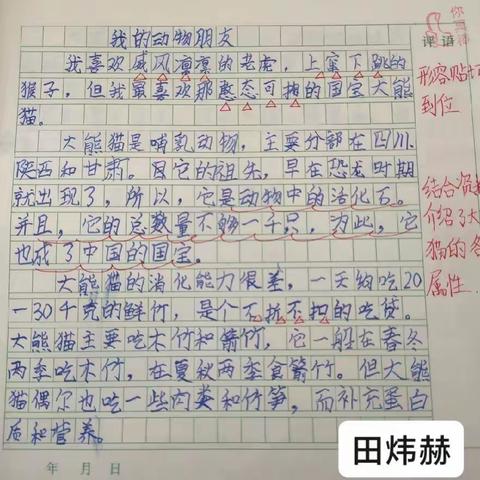 我的动物朋友
评语
我喜欢威风凛凛的老虎，上窜下跳的
猴子，但我最喜欢那憨态可掬的国宝大熊
猫。
大熊猫是哺乳动物，主要分部在四川、
陕西和甘肃。因它的祖先，早在恐龙时期
就出现了，所以，它是动物中的活化石。
并且，它的总数量不够一千只，为此，它
也成了中国的国宝。
大熊猫的消化能力很差，一天约吃20
一30千克的鲜竹，是个不折不扣的吃货。
大熊猫主要吃木竹和箭竹，它一般在春冬
两季吃木竹，在夏秋两季食箭竹。但大熊
猫偶尔也吃一些肉类和竹笋，而补充蛋白
质和营养。
形容贴切
到位
结合资
介绍了大
猫的各
属性
年 月 日
田炜赫